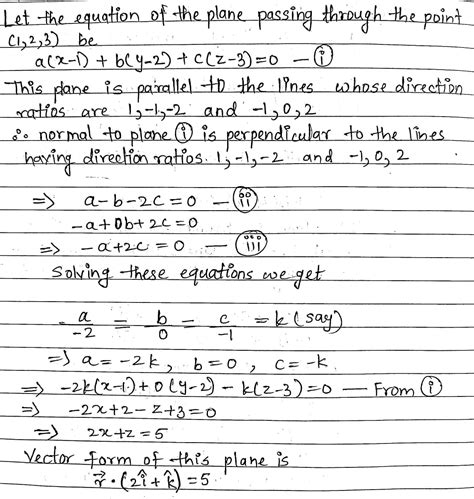 Let the equation of the plane passing through the point
(1,2,3) be
a(x-1) + b(y-2) + c(z-3)=0 — (i)
This plane is parallel to the lines whose direction
ratios are 1,-1,-2 and -1,0,2
∴ normal to plane (i) is perpendicular to the lines
having direction ratios. 1,-1,-2 and -1,0,2
⇒ a-b-2c=0 — (ii)
-a+0b+2c=0
⇒ -a+2c=0 — (iii)
Solving these equations we get
a/-2 = b/0 = c/-1 = k (say)
⇒ a=-2k, b=0, c=-k.
⇒ -2k(x-1)+0(y-2)-k(z-3)=0 — From (i)
⇒ -2x+2-z+3=0
⇒ 2x+z=5
Vector form of this plane is
r⃗·(2î+k̂)=5